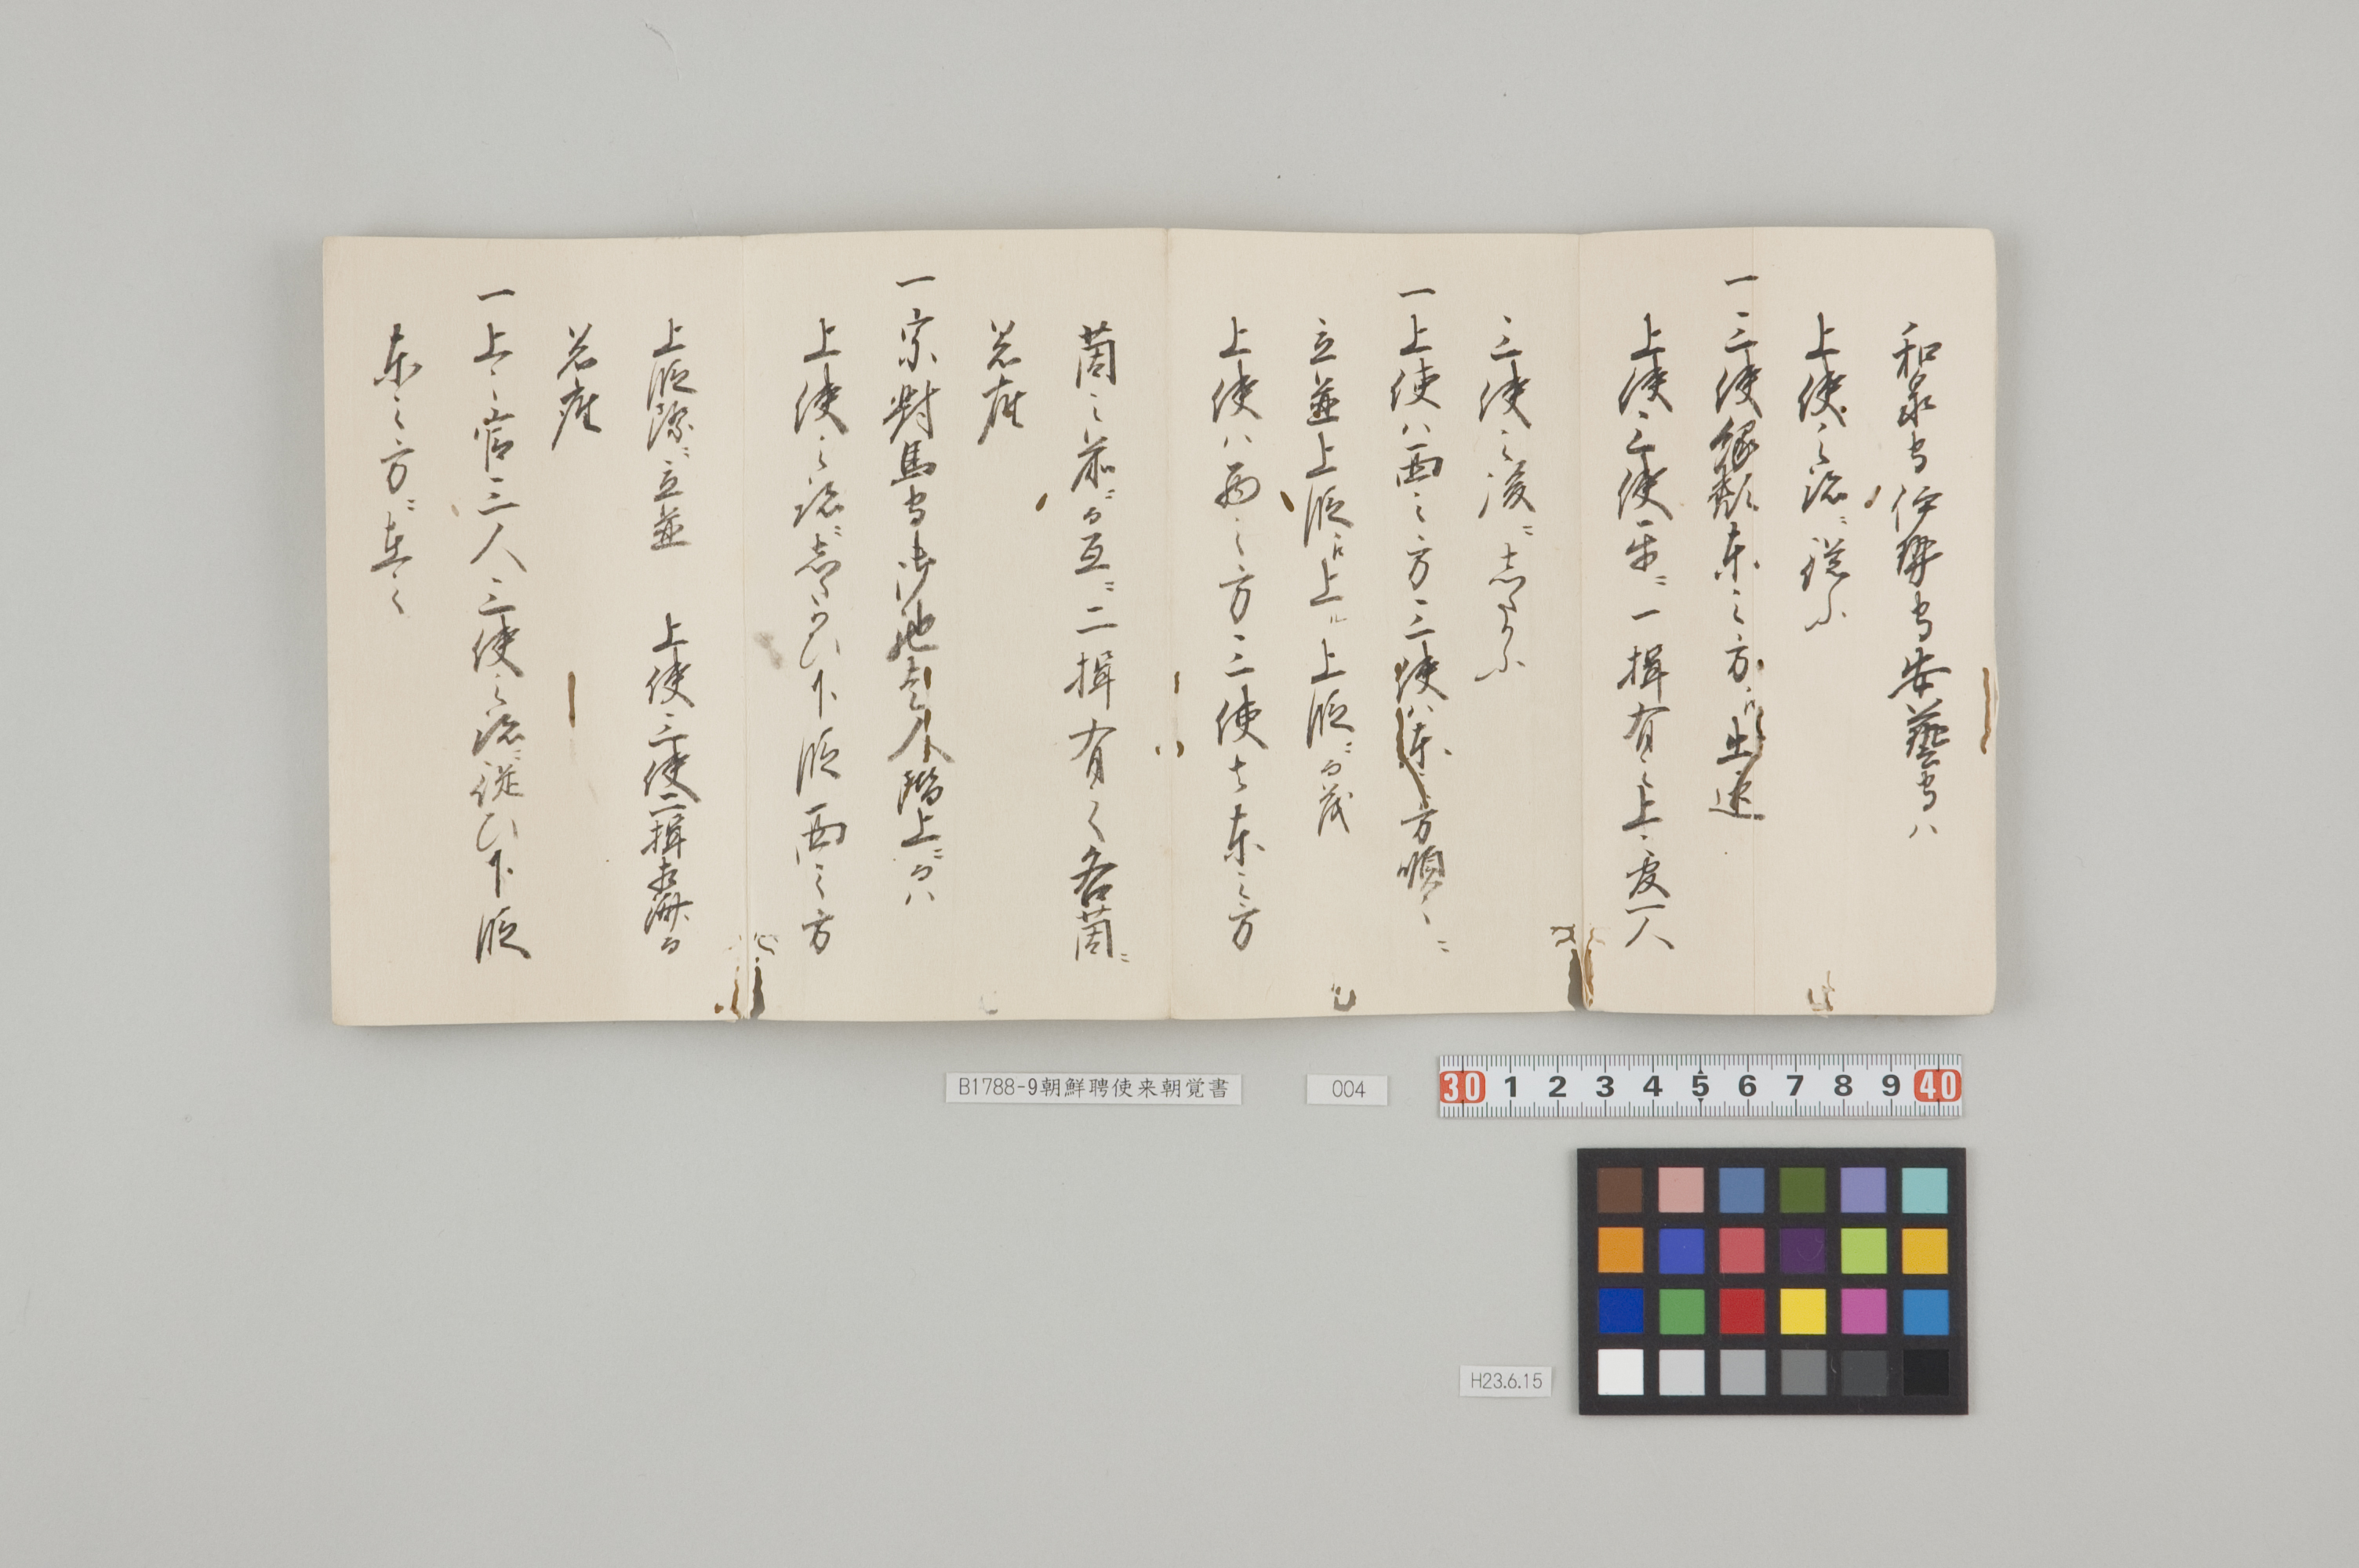 和泉守伊勢守安藝守ハ
上使之跡ニ從ふ
一三使縁頬東之方ニ出迎
上使三使平ニ一揖有之上々官一人
三使之後ニしたかふ
一上使ハ西之方三使ハ東之方順々ニ
立並上段に上ル上段ニ而茂
上使ハ西之方三使者東之方
茵之前ニ而互ニ二揖有之各茵ニ
着座
一宗對馬守
階上ニ而ハ
上使之跡ニしたかひ下段西之方
上段際ニ立並　上使三使二揖相済而
着座
一上々官三人三使之跡ニ從ひ下段
東之方ニ在之
B1788-9朝鮮聘使来朝覚書
004
30 1 2 3 4 5 6 7 8 9 40
H23.6.15